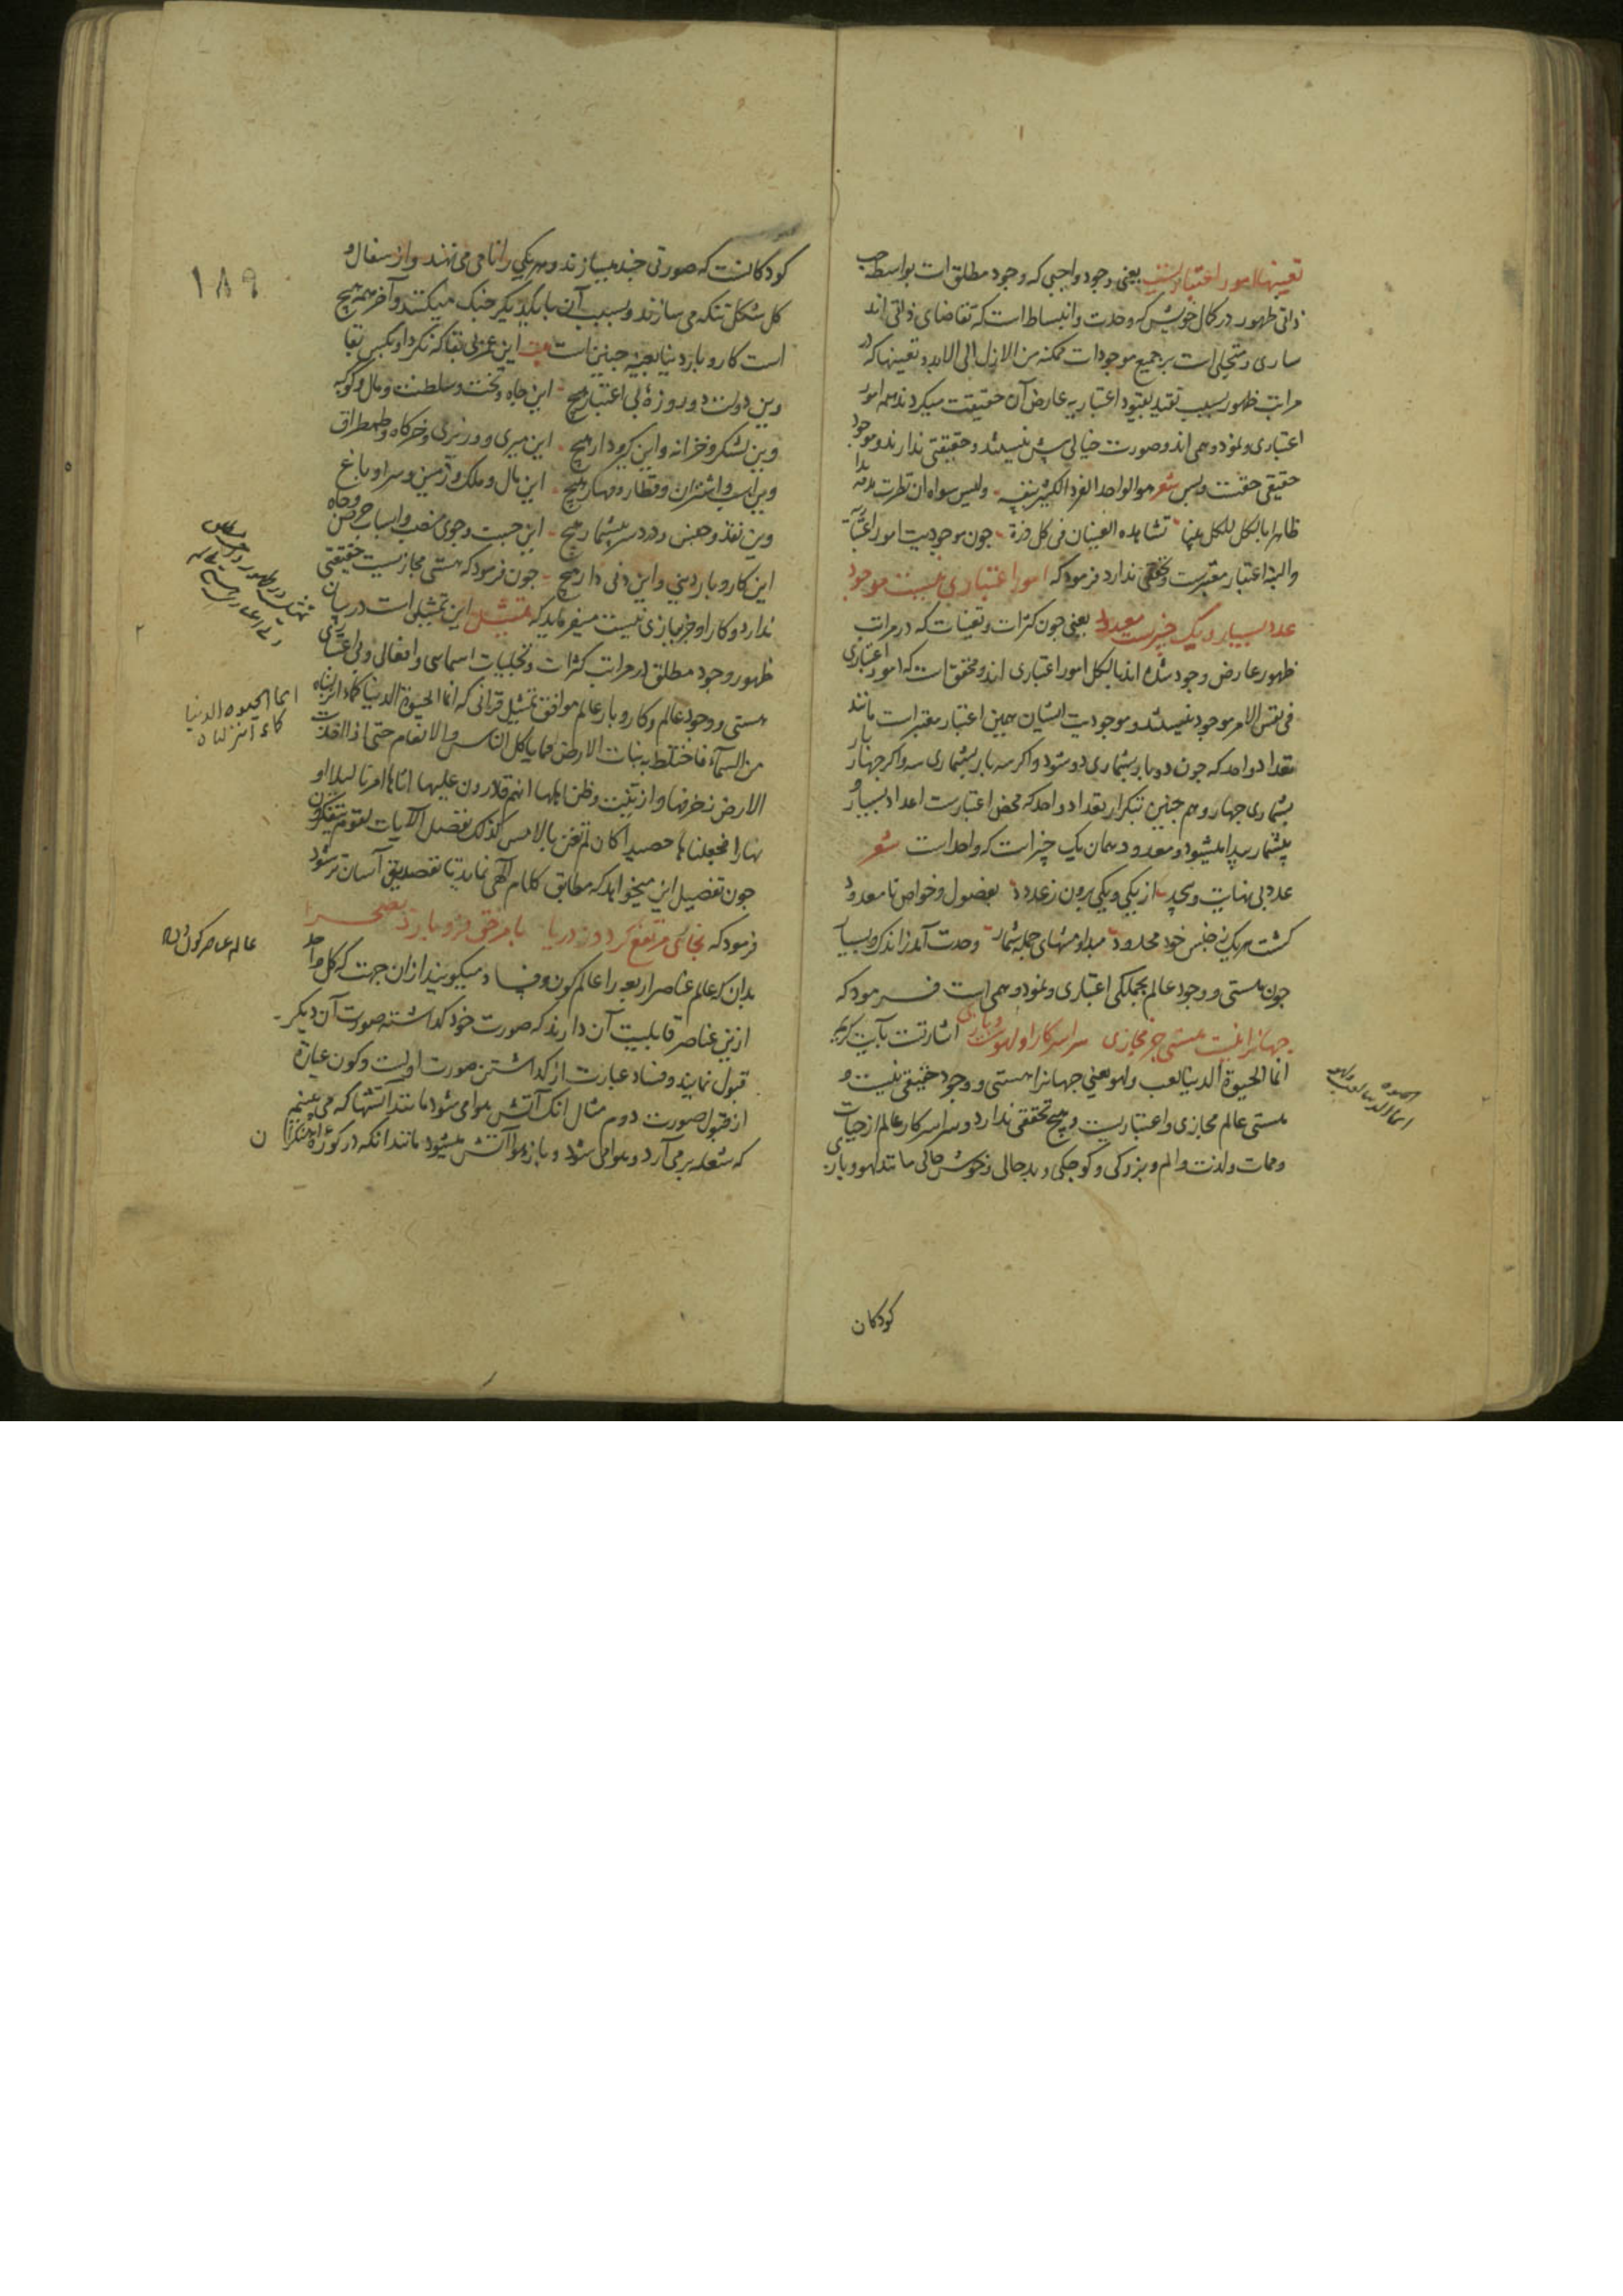 تعینها امور اعتباریست یعنی وجود واجبی که وجود مطلق است بواسطه حب
ذاتی ظهور در کمال خویش که وحدت و انبساط است که تقاضای ذاتی اند
ساری و متجلی است بر جمیع موجودات ممکنه من الازل الی الابد و تعینها که در
مراتب ظهور بسبب تقید بقیود اعتباریه عارض آن حقیقت میکردند همه امور
اعتباری و نمود وهمی اند و صورت خیالی بیش نیستند و حقیقتی ندارند و موجود
حقیقی حقست و بس شعر هو الواحد الفرد الکثیر بنفسه ولیس سواه ان نظرت بدقة
بدا ظاهرا بالکل للکل بینا تشاهده العینان فی کل ذرة چون موجودیت امور اعتباریه
والبته اعتبار معتبرست و تحققی ندارد فرمود که امور اعتباری نیست موجود
عدد بسیار و یک چیزست معدود یعنی چون کثرات و تعینات که در مراتب
ظهور عارض وجود شده اند بالکل امور اعتباری اند و محقق است که امور اعتباری
فی نفس الامر موجود نیستند و موجودیت ایشان همین اعتبار معتبر است مانند
تعداد واحد که چون دو بار بشماری دو شود و اکر سه بار بشماری سه و اکر جهار بار
بشماری جهار و هم جنین بتکرار تعداد واحد که محض اعتبارست اعداد بسیار و
بیشمار پیدا میشود و معدود همان یک چیز است که واحد است شعر
عدد بی نهایت و بیحد از یکی و یکی برون ز عدد بفصول و خواص نا معدود
کشت هر یک ز جنس خود محدود مبدا و منتهای جمله شمار وحدت آمد ز اندک و بسیار
چون هستی و وجود عالم بجملکی اعتباری و نمود وهمی است فرمود که
جهانرا نیست هستی جز مجازی سراسر کار او لهوست و بازی اشارتست بآیت کریمه
انما الحیوة الدنیا لعب و لهو یعنی جهانرا هستی و وجود حقیقی نیست و
هستی عالم مجازی و اعتباریست و هیچ تحققی ندارد و سراسر کار عالم از حیات
و ممات و لذت و الم و بزرکی و کوچکی و بد حالی و خوش حالی مانند لهو و بازی
کودکان
کودکانست که صورتی چند میسازند و هر یکی را نامی می نهند و از سفال و
کل شکل تنکه می سازند و بسبب آن با یکدیکر جنک میکنند و آخر همه هیچ
است کار و بار دنیا بعینه چنین است بیت این عز بی بقا که نکرد او بکس بقا
وین دولت دو روزۀ بی اعتبار هیچ این جاه و تخت و سلطنت و مال و کوکبه
وین لشکر و خزانه و این کیر و دار هیچ این میری و وزیری و خرکاه و طمطراق
وین اسب و اشتران و قطار و مهار هیچ این مال و ملک و زمین و سرا و باغ
وین نقد و جنس و درد سر بیشمار هیچ این جست و جوی منصب و اسباب حرص و جاه
این کار و بار دینی و این دنی دار هیچ چون فرمود که هستی مجازیست حقیقتی
ندارد و کار او جز بازی نیست میفرماید که تمثیل این تمثیلی است در بیان
ظهور وجود مطلق در مراتب کثرات و تجلیات اسمائی و افعالی و بی اعتباری
هستی و وجود عالم و کار و بار عالم موافق تمثیل قرآنی که انما الحیوة الدنیا کماء انزلناه
من السماء فاختلط به نبات الارض مما یاکل الناس و الانعام حتی اذا اخذت
الارض زخرفها وازینت وظن اهلها انهم قادرون علیها اتاها امرنا لیلا او
نهارا فجعلناها حصیدا کان لم تغن بالامس کذلک نفصل الآیات لقوم یتفکرون
چون تفصیل این میخواهد که مطابق کلام الهی نماید تا تصدیق آسان تر شود
فرمود که بخاری مرتفع کردد ز دریا بامر حق فرو بارد بصحرا
بدان که عالم عناصر اربعه را عالم کون و فساد میکویند از ان جهت که کل واحد
ازین عناصر قابلیت آن دارند که صورت خود کداشته صورت آن دیکر
قبول نمایند و فساد عبارت از کداشتن صورت اولست و کون عبارة
از قبول صورت دوم مثال انک آتش هوا می شود مانند آتشها که می بینیم
که شعله بر می آرد و هوا می شود و باز هوا آتش میشود مانند انکه در کورۀ آهنکران
۱۸۹
انما الحیوه الدنیا
کماء انزلناه
عالم عناصر کون و فساد